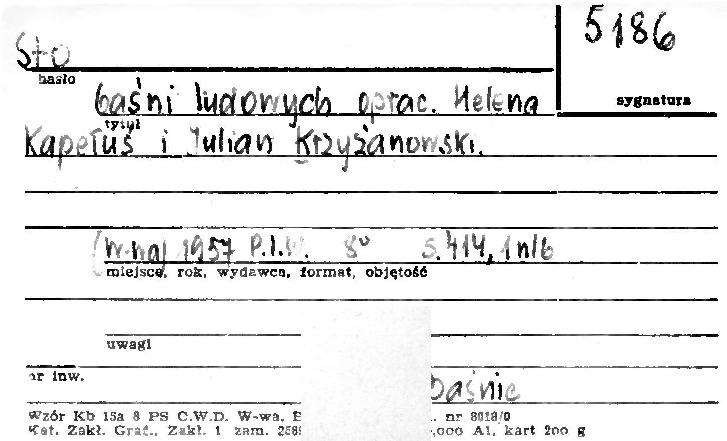 Sto
5186
hasło
sygnatura
baśni ludowych oprac. Helena
tytył
Kapełuś i Julian Krzyżanowski.
(W-wa) 1957 P.I.W. 8° s. 414, 1 nlb
miejsce, rok, wydawca, format, objętość
uwagi
nr inw.
baśnie
Wzór Kb 15a 8 PS C.W.D. W-wa, nr 8018/0
Kat. Zakł. Graf., Zakł. 1 zam. ,000 A1, kart 200 g